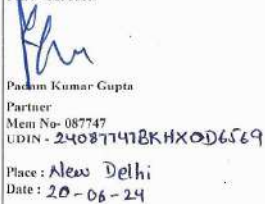 Padam Kumar Gupta
Partner
Mem No- 087747
UDIN - 24087747BKHXOD6569
Place : New Delhi
Date : 20-06-24